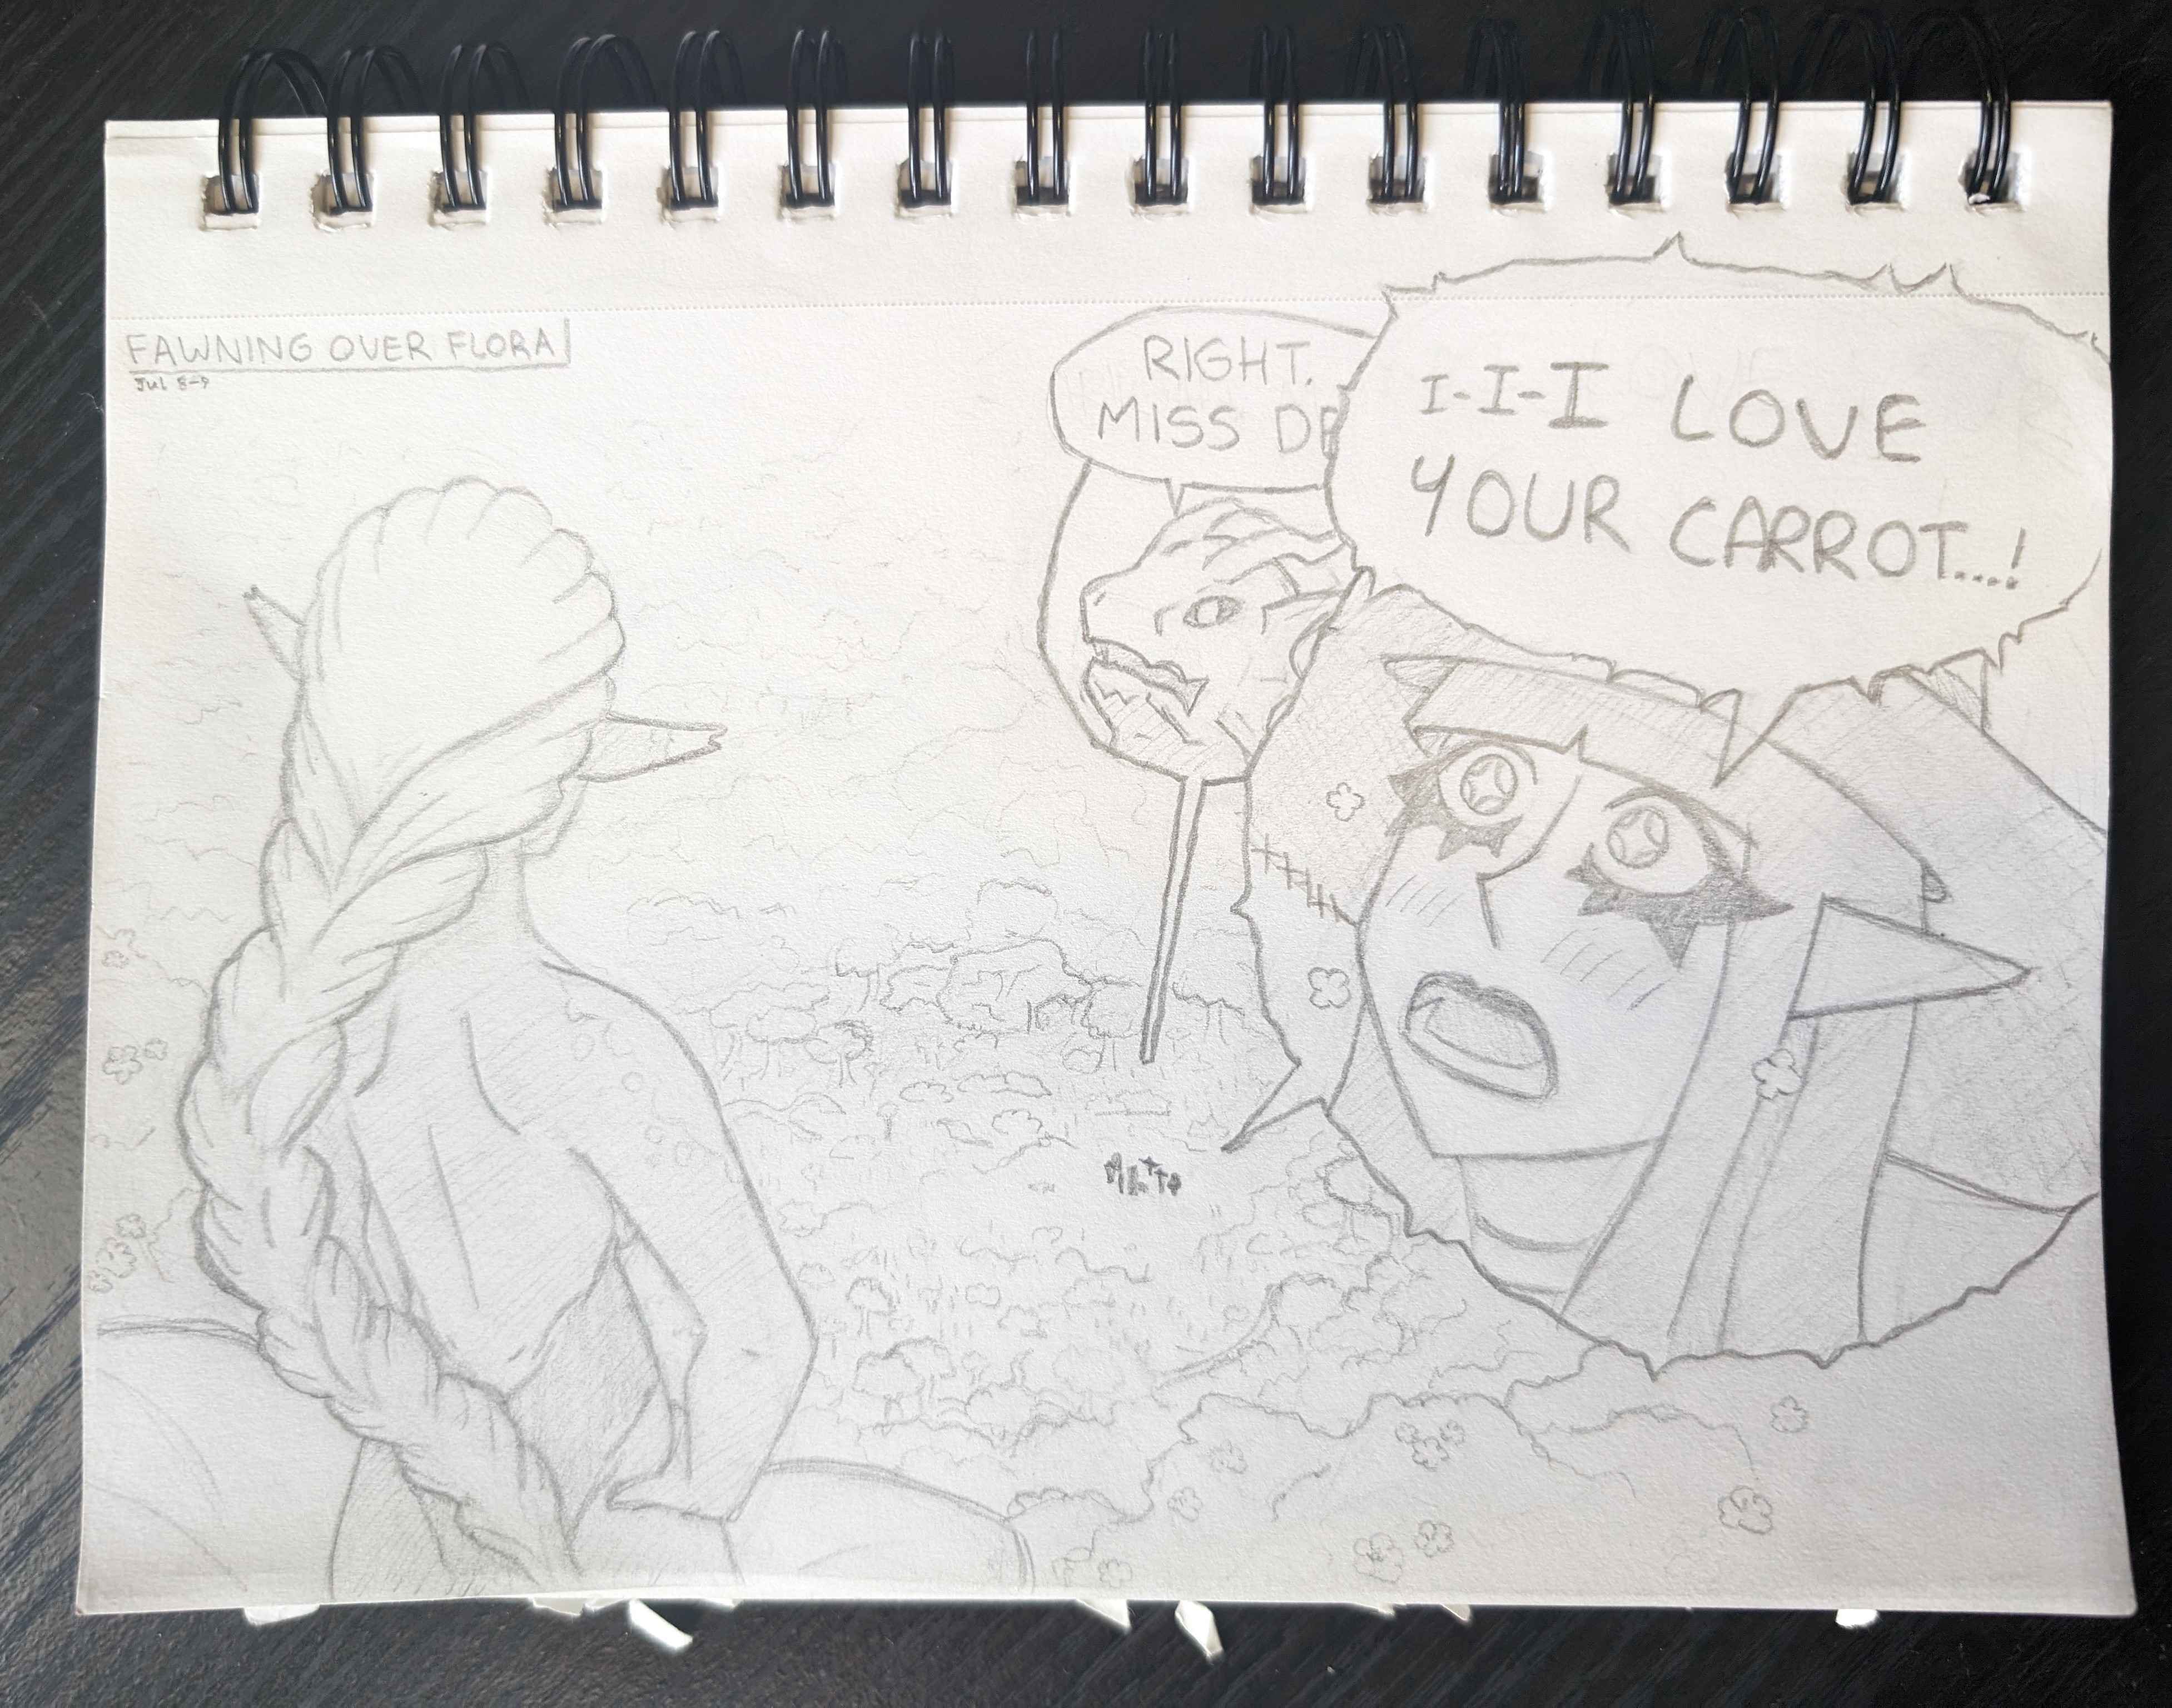 FAWNING OVER FLORA
Jul 8-9
RIGHT.
MISS DE
I-I-I LOVE
YOUR CARROT...!